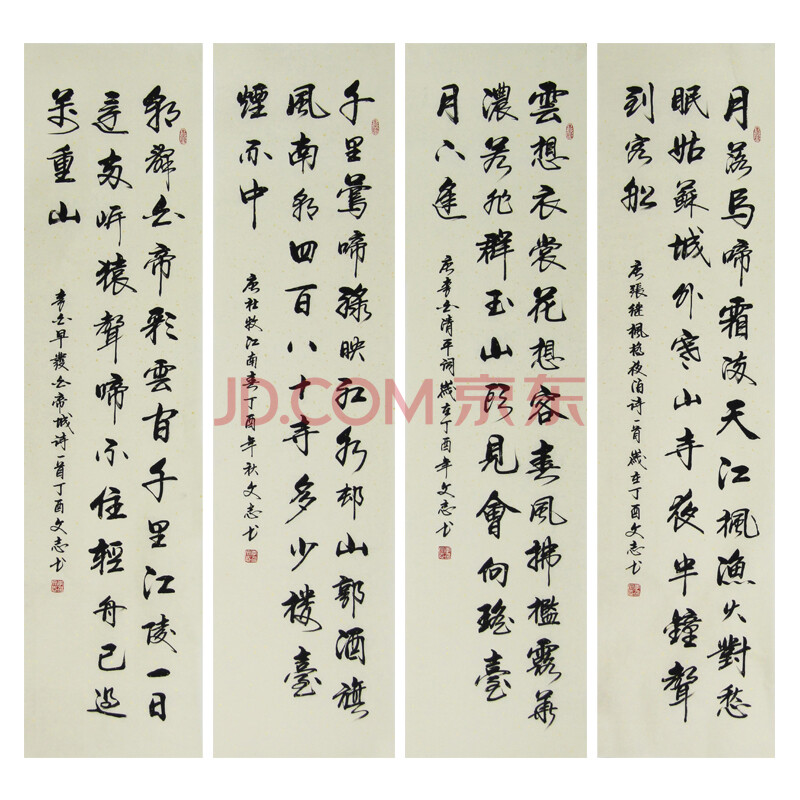 月落烏啼霜滿天江楓漁火對愁
眠姑蘇城外寒山寺夜半鐘聲
到客船
唐張繼楓橋夜泊詩一首歲在丁酉文志书
雲想衣裳花想容春風拂檻露華
濃若非群玉山頭見會向瑤臺
月下逢
唐李白清平詞歲在丁酉年文志书
千里鶯啼綠映紅水邨山郭酒旗
風南朝四百八十寺多少樓臺
煙雨中
唐杜牧江南春丁酉年秋文志书
朝辭白帝彩雲間千里江陵一日
還兩岸猿聲啼不住輕舟已過
萬重山
李白早發白帝城詩一首丁酉文志书
JD.COM京东